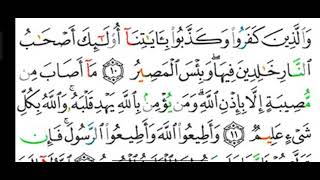 وَٱلَّذِينَ كَفَرُوا۟ وَكَذَّبُوا۟ بِـَٔايَـٰتِنَآ أُو۟لَـٰٓئِكَ أَصْحَـٰبُ
ٱلنَّارِ خَـٰلِدِينَ فِيهَا ۖ وَبِئْسَ ٱلْمَصِيرُ ١٠ مَآ أَصَابَ مِن
مُّصِيبَةٍ إِلَّا بِإِذْنِ ٱللَّهِ ۗ وَمَن يُؤْمِنۢ بِٱللَّهِ يَهْدِ قَلْبَهُۥ ۚ وَٱللَّهُ بِكُلِّ
شَىْءٍ عَلِيمٌ ١١ وَأَطِيعُوا۟ ٱللَّهَ وَأَطِيعُوا۟ ٱلرَّسُولَ ۚ فَإِن